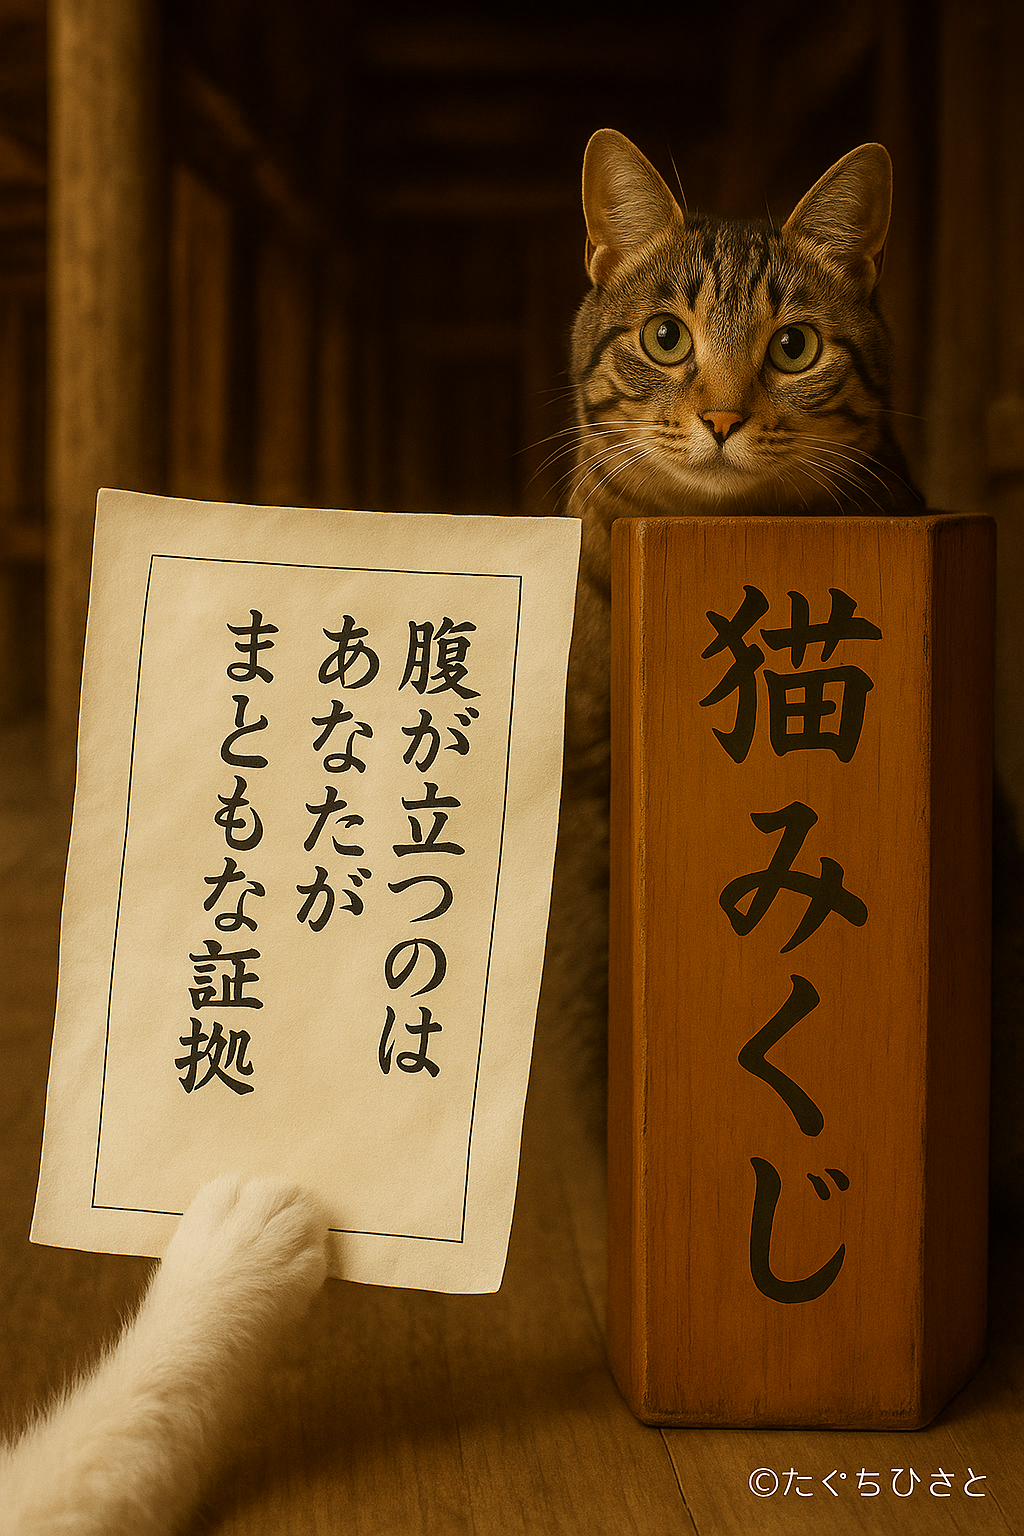 腹が立つのは
あなたが
まともな証拠
猫みくじ
©たぐちひさと